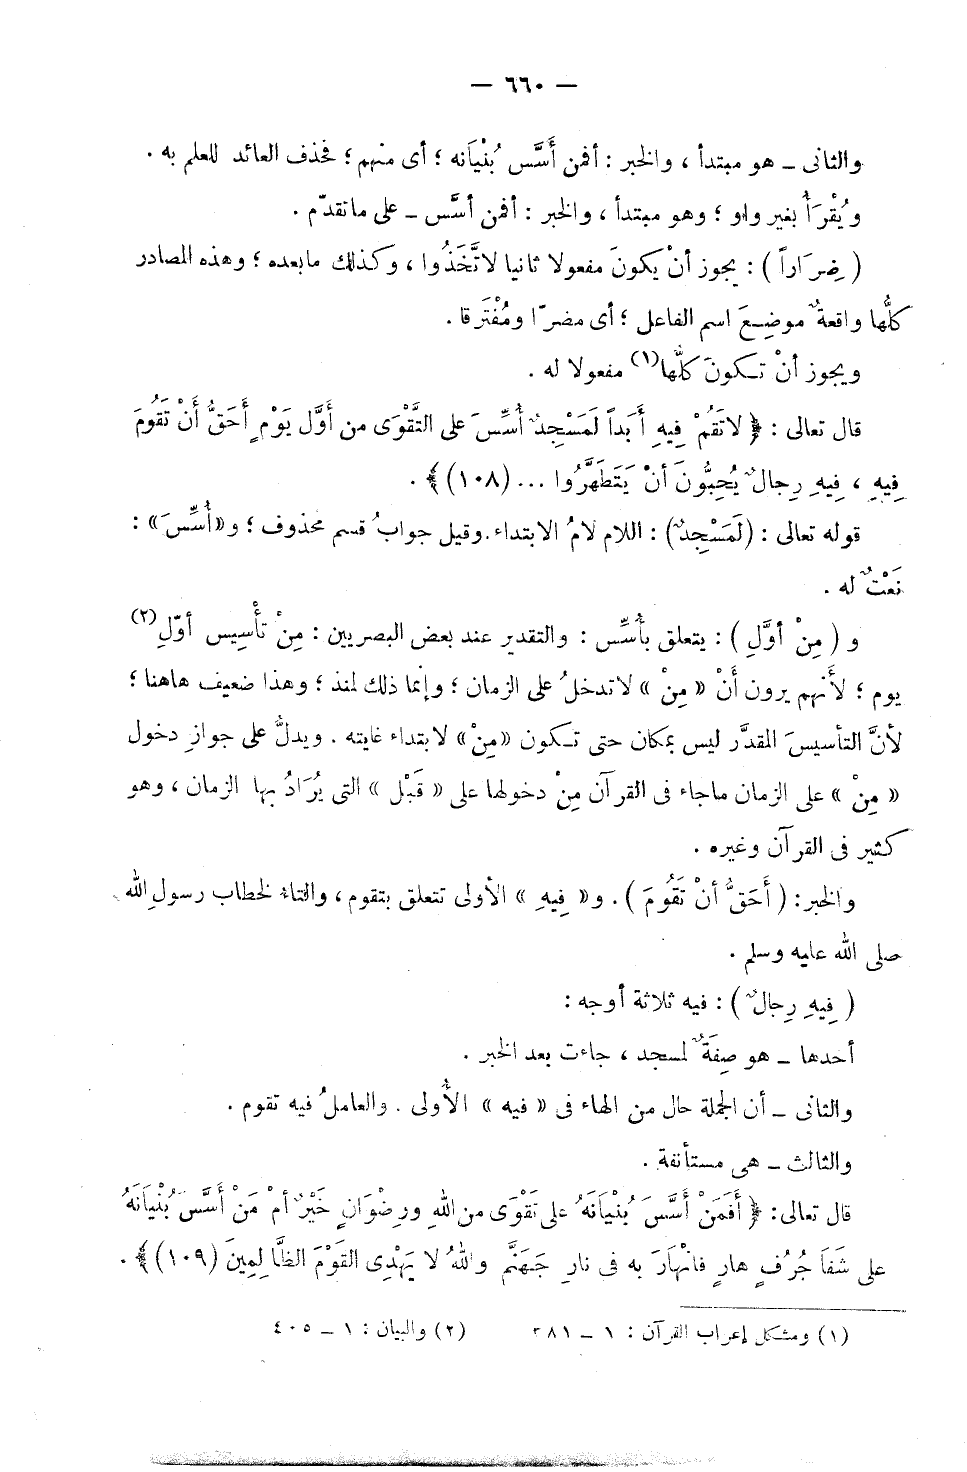 — ٦٦٠ —
والثانى ــ هو مبتدأ ، والخبر : أفمن أَسَّس بُنْيَانه ؛ أى منهم ؛ فحذف العائد للعلم به .
ويُقْرَأُ بغير واو ؛ وهو مبتدأ ، والخبر : أفمن أسَّس ــ على ماتقدّم .
( ضِرَاراً ) : يجوز أنْ يكونَ مفعولا ثانيا لاتَّخَذُوا ، وكذلك مابعده ؛ وهذه المصادر
كلُّها واقعةٌ موضِعَ اسم الفاعل ؛ أى مضرّا ومُفْتَرقا .
ويجوز أنْ تكونَ كلُّها(١) مفعولا له .
قال تعالى : ﴿ لاتَقُمْ فِيهِ أَبَداً لَمَسْجِدٌ أُسِّسَ على التَّقْوَى من أَوَّل يَوْمٍ أَحَقُّ أَنْ تَقُومَ
فِيهِ ، فِيهِ رِجالٌ يُحِبُّونَ أنْ يَتَطَهَّرُوا ... (١٠٨) ﴾ .
قوله تعالى : (لَمَسْجِدٌ) : اللام لامُ الابتداء.وقيل جوابُ قسم محذوف ؛ و«أُسِّسَ» :
نَعْتٌ له .
و ( مِنْ أوَّلِ ) : يتعلق بأُسِّس : والتقدير عند بعض البصريين : مِنْ تأْسِيس أوّلِ(٢)
يوم ؛ لأَنهم يرون أَنْ « مِنْ » لاتدخلُ على الزمان ؛ وإنما ذلك لمنذ ؛ وهذا ضعيف هاهنا ؛
لأنَّ التأسيسَ المقدَّر ليس بمكان حتى تكون «مِنْ» لابتداء غايته . ويدلُّ على جوازِ دخول
« مِنْ » على الزمان ماجاء فى القرآن مِنْ دخولها على « قَبْل » التى يُرَادُ بها الزمان ، وهو
كثير فى القرآن وغيره .
والخبر: ( أَحَقُّ أنْ تَقُومَ ) . و« فِيهِ » الأولى تتعلق بتقوم ، والتاء لخطاب رسولِ الله
صلى الله عليه وسلم .
( فِيهِ رِجالٌ ) : فيه ثلاثة أوجه :
أحدها ــ هو صِفَةٌ لمسجد ، جاءت بعد الخبر .
والثانى ــ أن الجملة حال من الهاء فى « فيه » الأُولى . والعاملُ فيه تقوم .
والثالث ــ هى مستأنفة .
قال تعالى: ﴿ أَفَمَنْ أَسَّسَ بُنْيَانَهُ على تَقْوَى من اللهِ ورِضْوَانٍ خَيْرٌ أمْ مَنْ أَسَّسَ بُنْيَانَهُ
على شَفَا جُرُفٍ هارٍ فانْهَارَ به فى نارِ جَهَنَّم واللهُ لا يَهْدِى القَوْمَ الظَّالِمِينَ (١٠٩) ﴾ .
(١) ومشكل إعراب القرآن : ١ ــ ٣٨١ (٢) والبيان : ١ ــ ٤٠٥